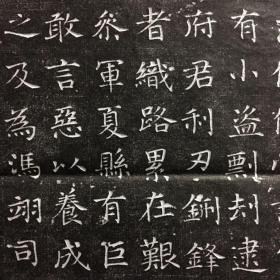 有小盗剽刦逮
府君利刃鉶鋒
者織路累在艱
叅軍夏縣有巨
敢言惡以養成
之及為馮翊司